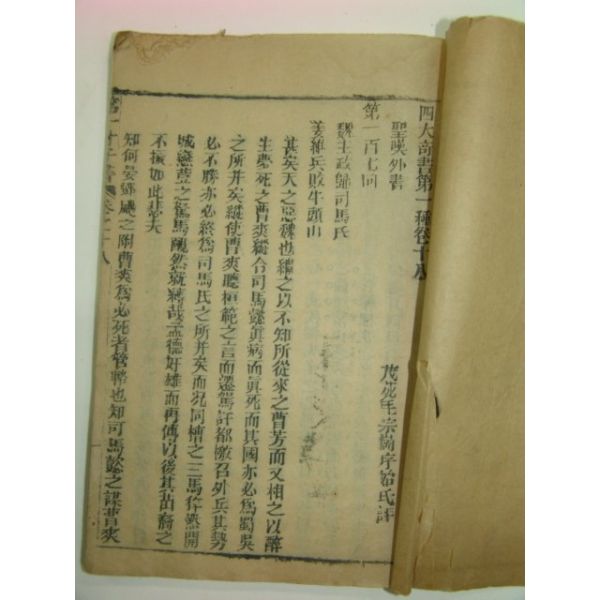 四大奇書第一種卷十八
聖嘆外書
茂苑毛宗崗序始氏評
第一百七回
魏主政歸司馬氏
姜維兵敗牛頭山
甚矣天之惡魏也繼之以不知所從來之曹芳而又相之以醉
生夢死之曹爽縱令司馬懿眞病而眞死而其國亦必爲蜀吳
之所并矣縱使曹爽聽桓範之言而遷駕許都檄召外兵其勢
必不勝亦必終爲司馬氏之所并矣而况同槽之三馬
城
馬
就
哉
孟德奸雄而再傳以後其
裔之
不振如此悲夫
知何晏鄧颺之附曹爽爲必死者管輅也知司馬懿之謀曹爽
第一才子書
卷五十八